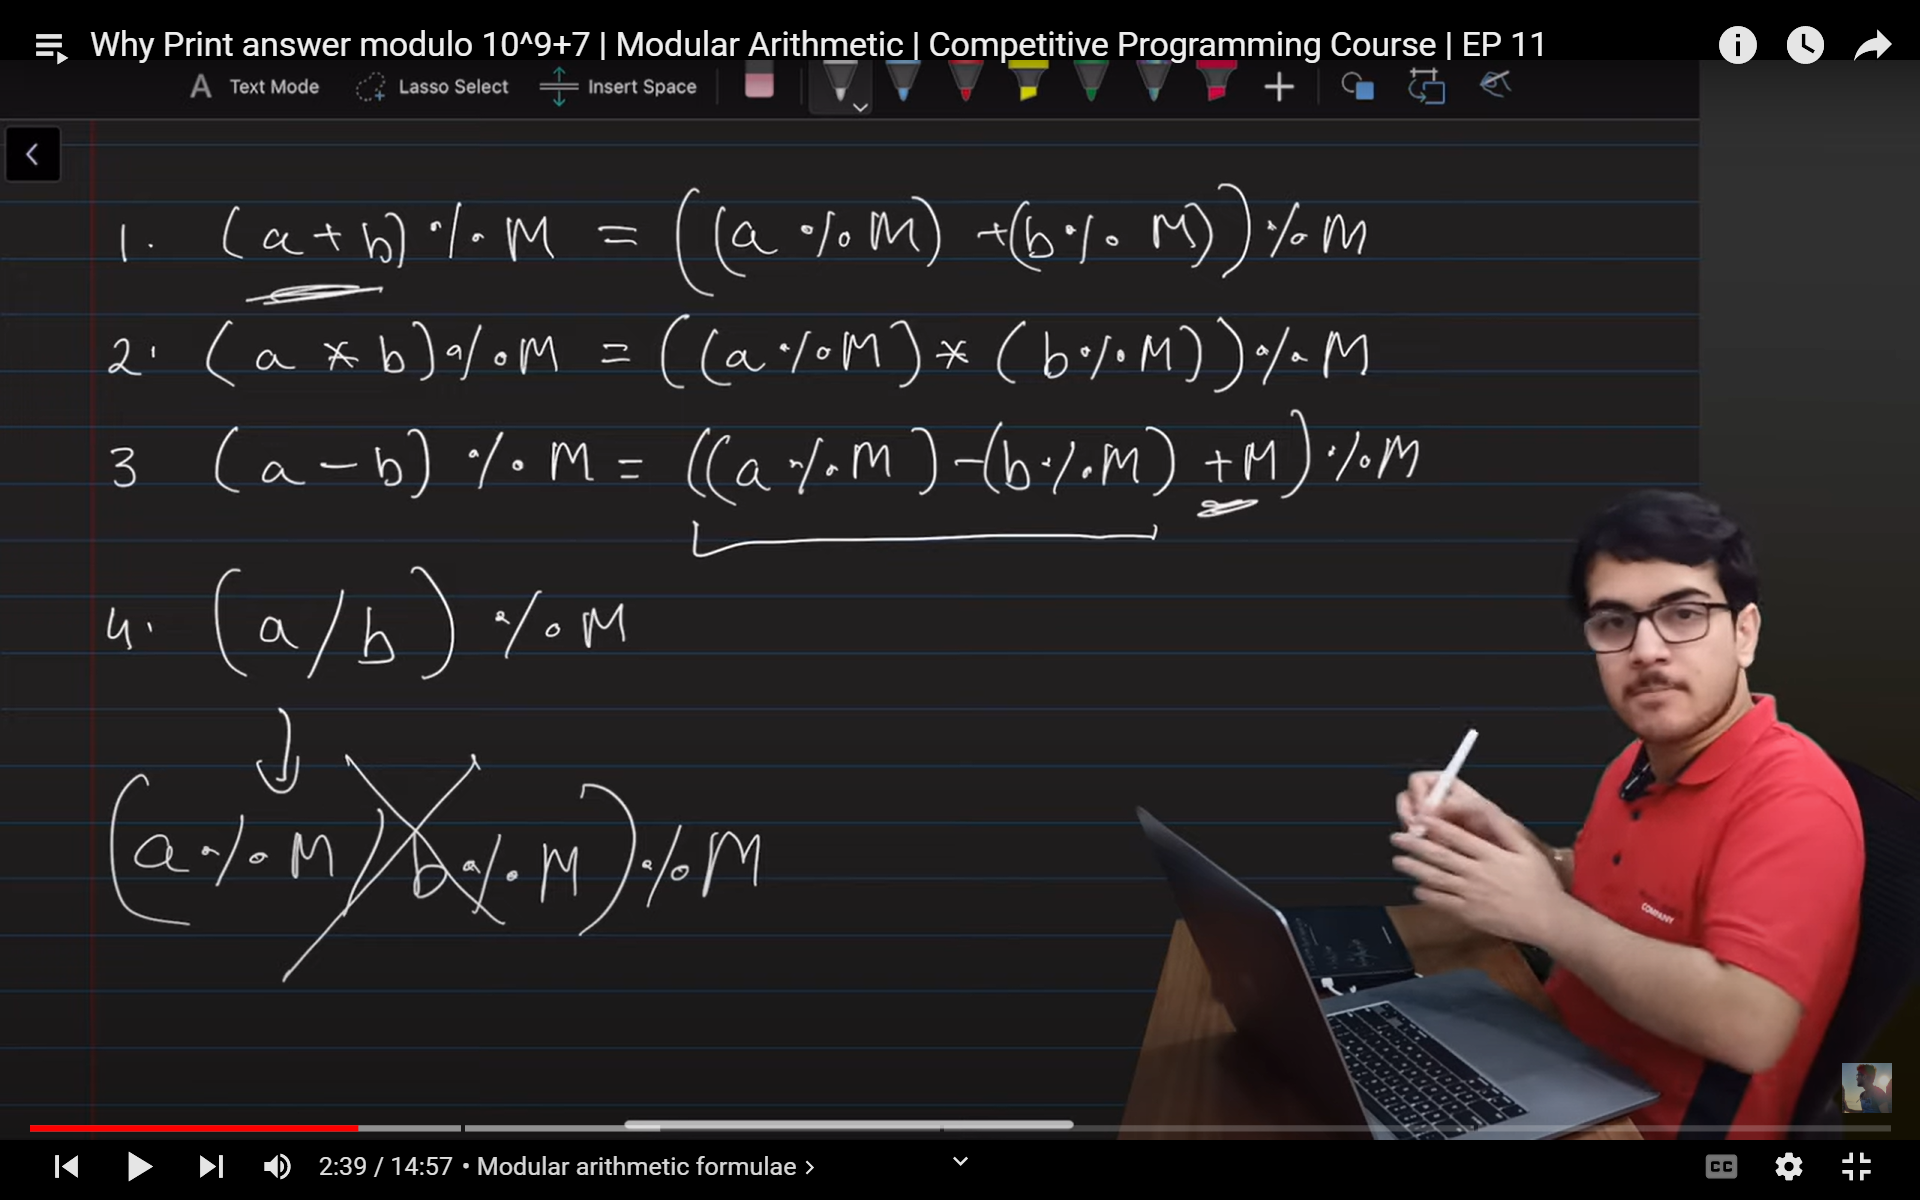 Why Print answer modulo 10^9+7 | Modular Arithmetic | Competitive Programming Course | EP 11
A Text Mode Lasso Select Insert Space
1. (a + b) % M = ((a % M) + (b % M)) % M
2. (a * b) % M = ((a % M) * (b % M)) % M
3 (a - b) % M = ((a % M) - (b % M) + M) % M
4. (a / b) % M
(a % M / b % M) % M
COMPANY
2:39 / 14:57 • Modular arithmetic formulae >
CC